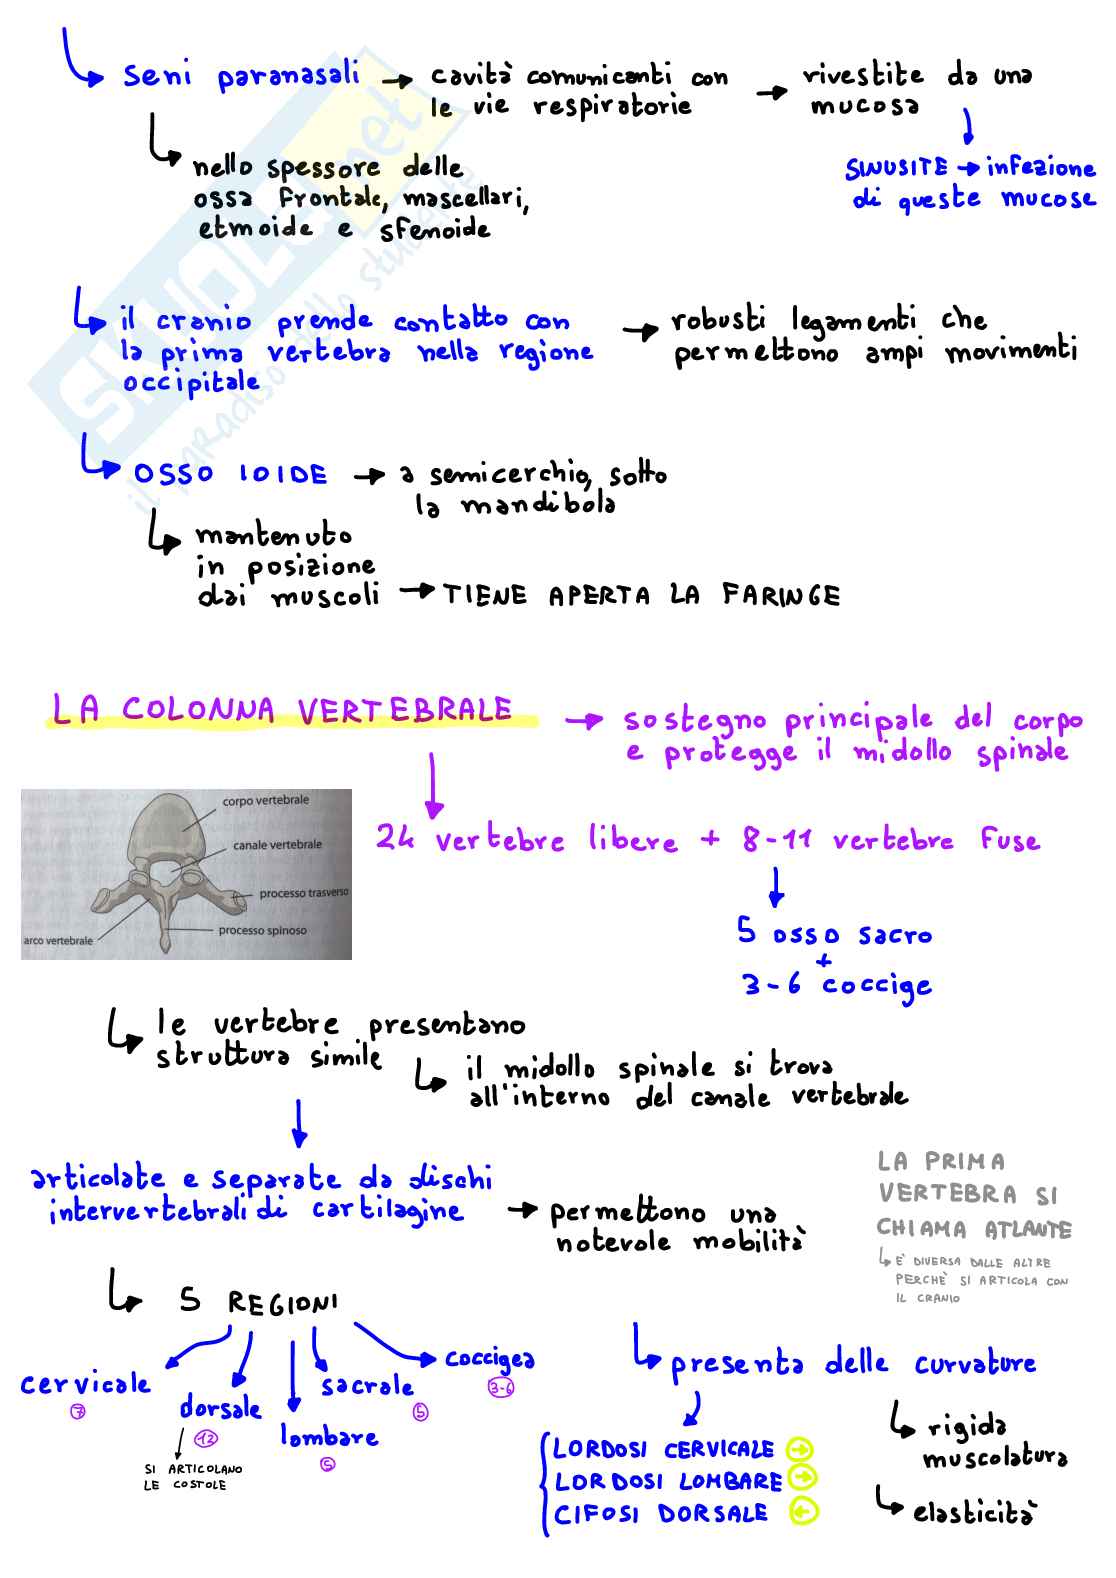 seni paranasali → cavità comunicanti con
le vie respiratorie → rivestite da una
mucosa
SINUSITE → infezione
di queste mucose
nello spessore delle
ossa frontale, mascellari,
etmoide e sfenoide
il cranio prende contatto con
la prima vertebra nella regione
occipitale
→ robusti legamenti che
permettono ampi movimenti
OSSO IOIDE → a semicerchio, sotto
la mandibola
mantenuto
in posizione
dai muscoli → TIENE APERTA LA FARINGE
SKUOLA.net
il paradiso dello studente
LA COLONNA VERTEBRALE → sostegno principale del corpo
e protegge il midollo spinale
24 vertebre libere + 8-11 vertebre fuse
5 osso sacro
+
3-6 coccige
corpo vertebrale
canale vertebrale
processo trasverso
processo spinoso
arco vertebrale
le vertebre presentano
struttura simile
il midollo spinale si trova
all'interno del canale vertebrale
articolate e separate da dischi
intervertebrali di cartilagine
→ permettono una
notevole mobilità
LA PRIMA
VERTEBRA SI
CHIAMA ATLANTE
È DIVERSA DALLE ALTRE
PERCHÈ SI ARTICOLA CON
IL CRANIO
5 REGIONI
cervicale
7
dorsale
12
SI ARTICOLANO
LE COSTOLE
lombare
5
sacrale
5
coccigea
3-6
presenta delle curvature
LORDOSI CERVICALE →
LORDOSI LOMBARE →
CIFOSI DORSALE ←
rigida
muscolatura
elasticità